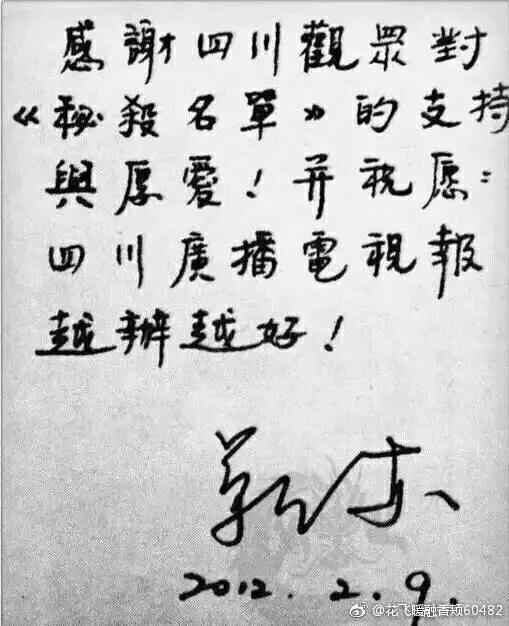 感謝四川觀眾對
《秘殺名單》的支持
與厚愛！并祝愿：
四川廣播電視報
越辦越好！
靳东
2012.2.9.
@花飞暖融香颊60482